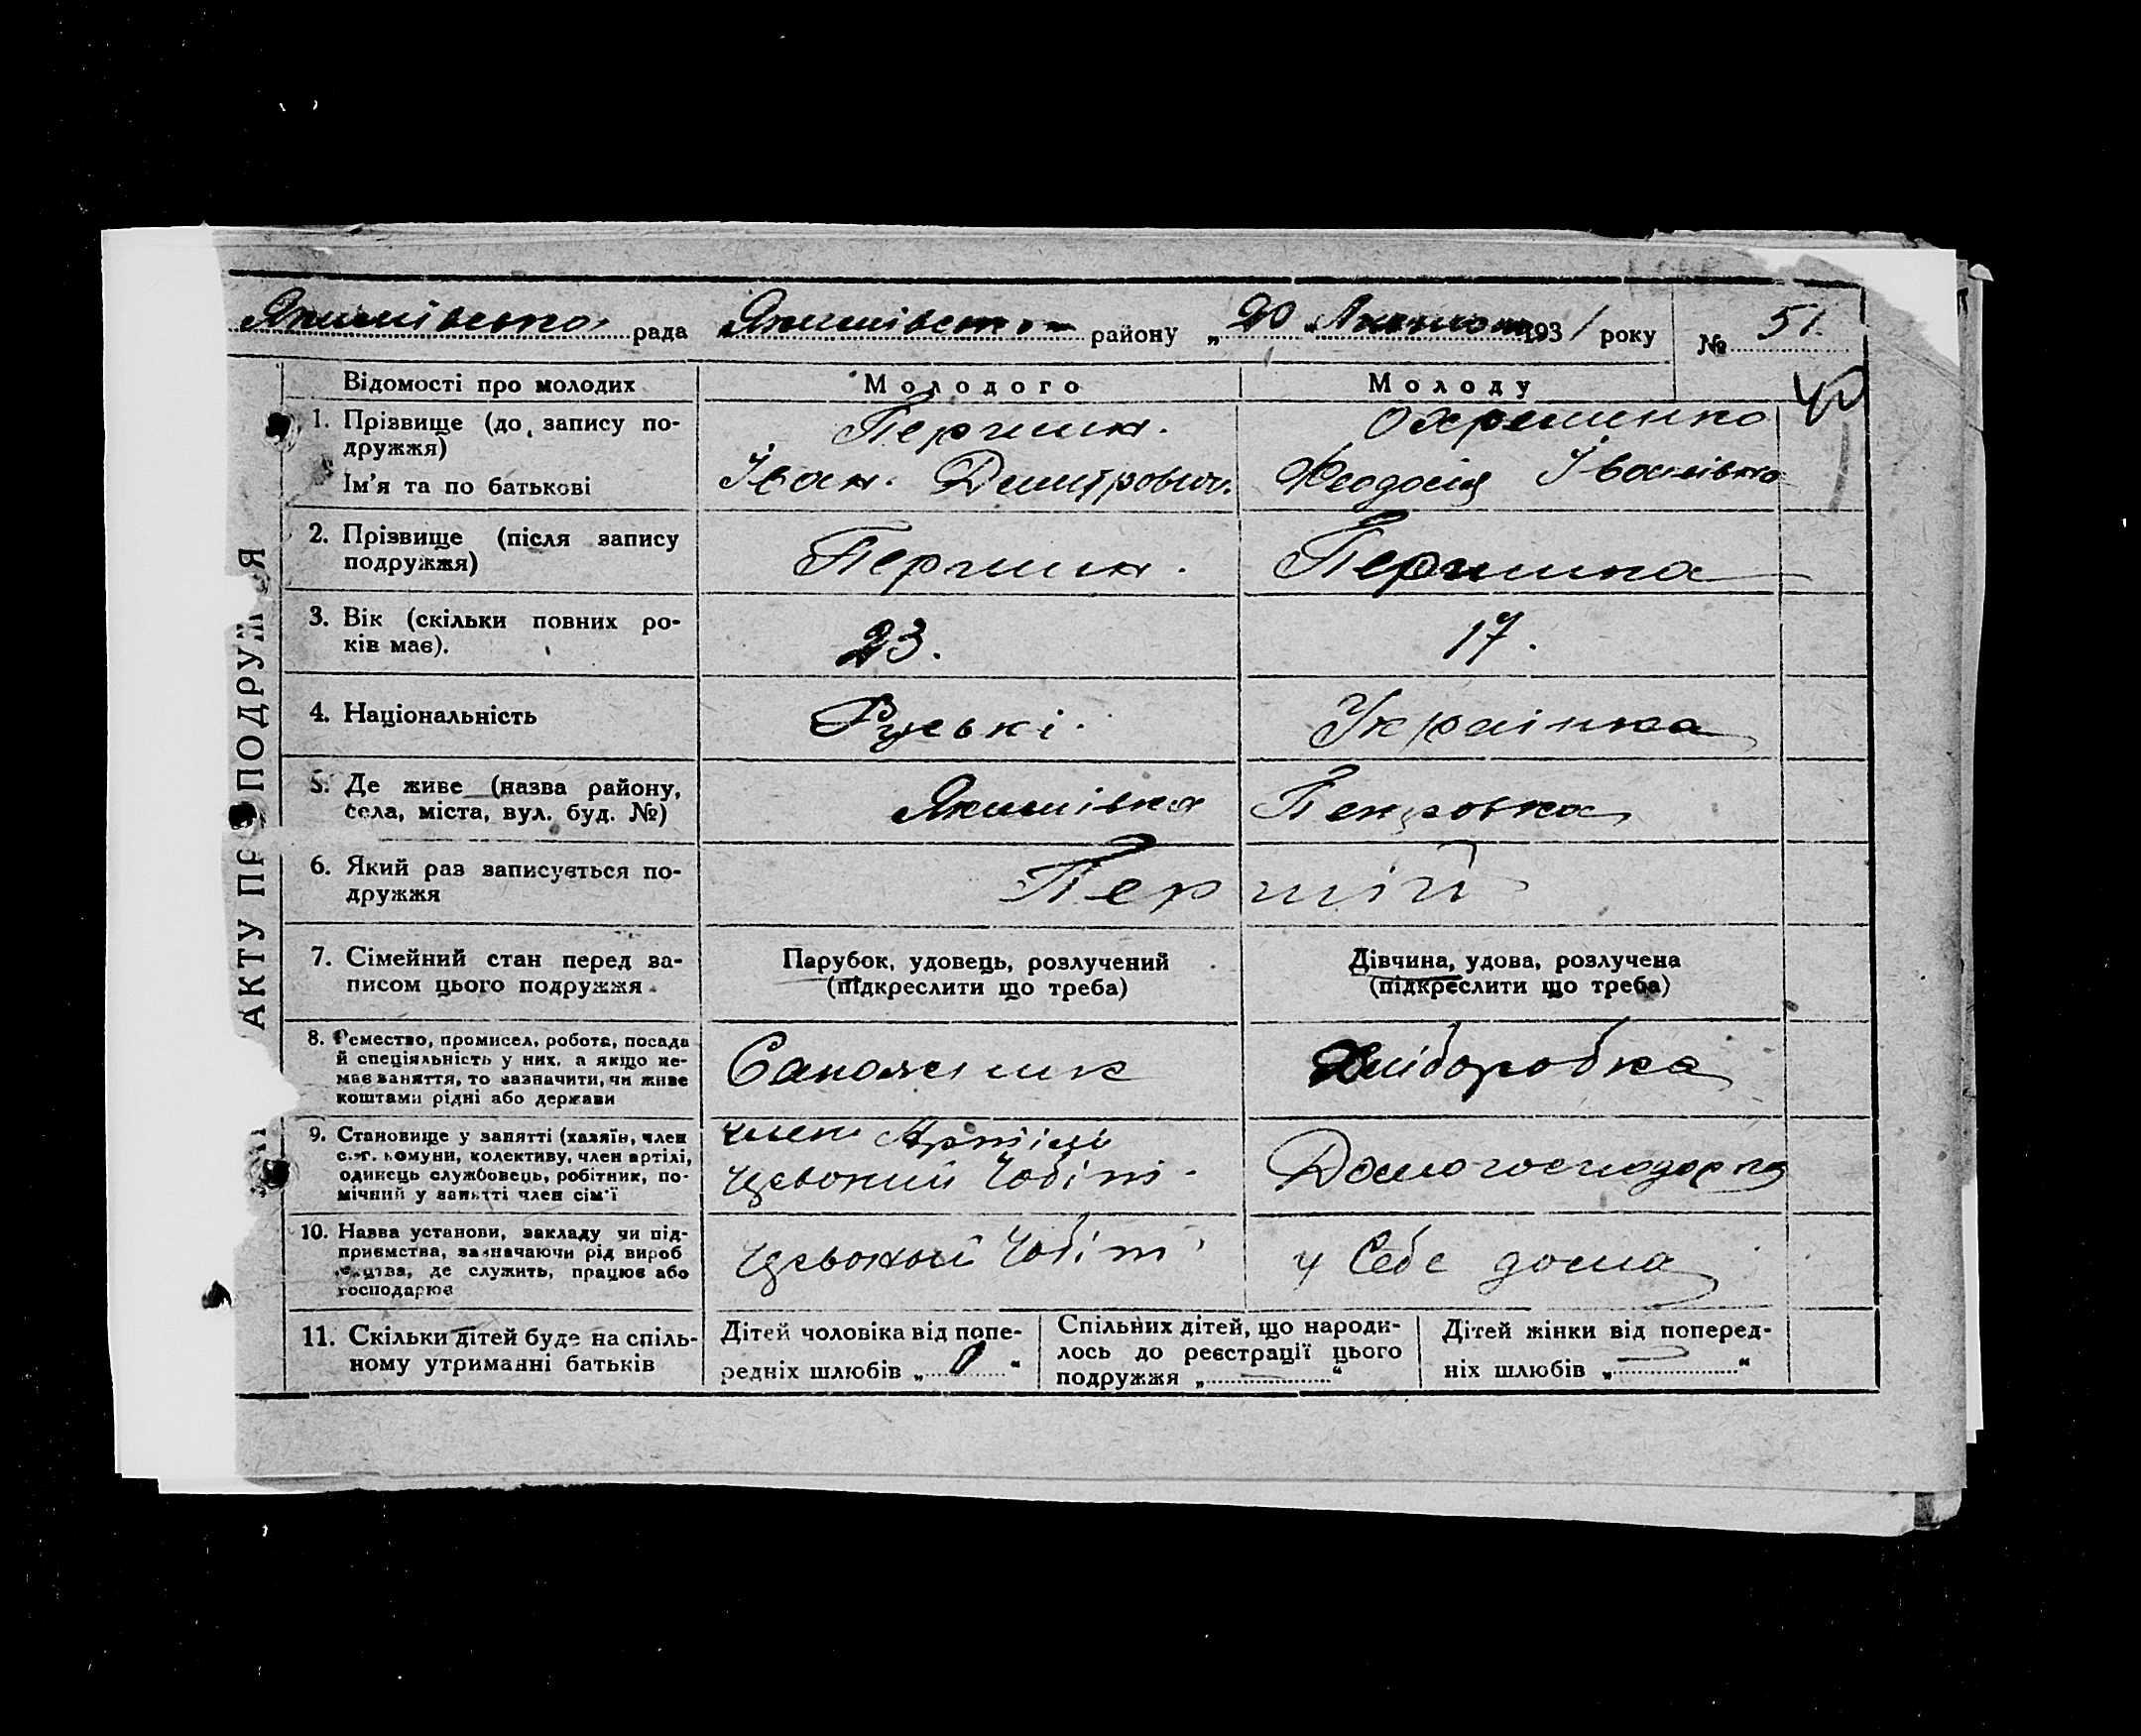 Якимівська рада Якимівськ району „20 193 1 року № 51.
Відомості про молодих Молодого Молоду
1. Прізвище (до запису по-
дружжя) Першин. Охременко
Ім'я та по батькові Іван. Дмитрович. Феодосія Іванівна
2. Прізвище (після запису
подружжя) Першин. Першина
3. Вік (скільки повних ро-
ків має). 23. 17.
4. Національність Руські. Українка
5. Де живе (назва району,
села, міста, вул. буд. №) Якимівка Петровка
6. Який раз записується по-
дружжя Перший
7. Сімейний стан перед за-
писом цього подружжя Парубок, удовець, розлучений
(підкреслити що треба) Дівчина, удова, розлучена
(підкреслити що треба)
8. Ремество, промисел, робота, посада
й спеціяльність у них, а якщо не-
має заняття, то зазначити, чи живе
коштами рідні або держави Сапожник Хліборобка
9. Становище у занятті (хазяїн, член
с.-г. комуни, колективу, член артілі,
одинець службовець, робітник, по-
мічний у занятті член сім'ї член Артілі
Чевоний Чобіт Домогосподарка
10. Назва установи, закладу чи під-
приємства, зазначаючи рід вироб
ництва, де служить, працює або
господарює Чевоний Чобіт у себе дома
11. Скільки дітей буде на спіль-
ному утриманні батьків
Дітей чоловіка від попе-
редніх шлюбів „ 0 “
Спільних дітей, що народи-
лось до реєстрації цього
подружжя „ — “
Дітей жінки від поперед-
ніх шлюбів „ — “
АКТУ ПРО ПОДРУЖЖЯ